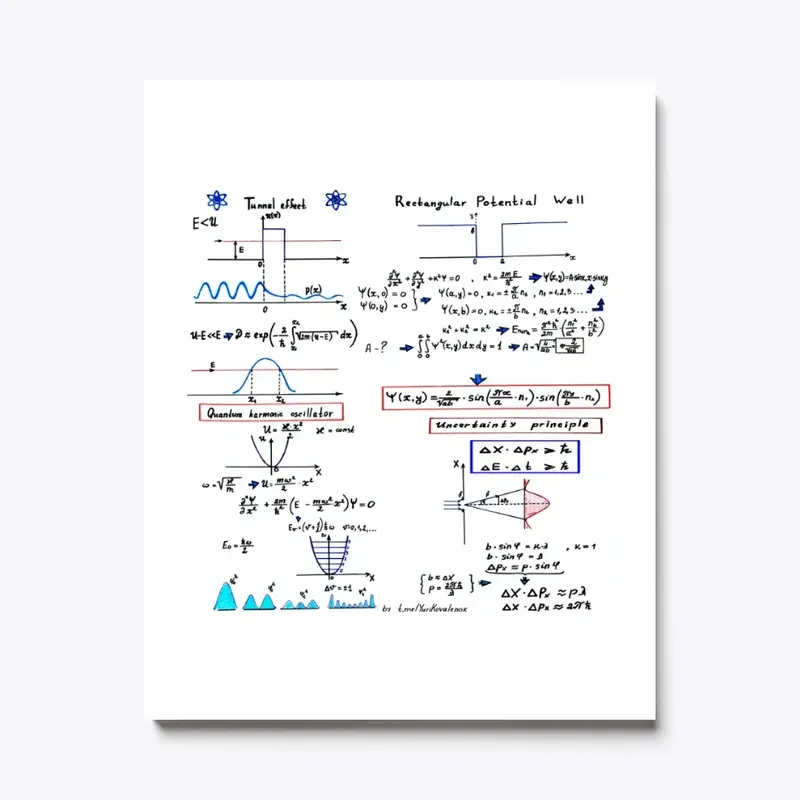 Tunnel effect
E<U
U(x)
E
0
x
p(x)
0
x
U-E<<E ⇒ D ≈ exp(-2/ħ ∫ √2m(U-E) dx)
x₁
x₂
E
x₁ x₂
x
Quantum harmonic oscillator
U = ϰ·x²/2 ϰ = const
U
0
x
ω = √ϰ/m ⇒ U = mω²/2 · x²
∂²Ψ/∂x² + 2m/ħ² (E - mω²/2 x²)Ψ = 0
Eᵥ = (v + 1/2)ħω v = 0,1,2,...
E₀ = ħω/2
0
x
Δv = ±1
Rectangular Potential Well
0 a x
∂²Ψ/∂x² + ∂²Ψ/∂y² + K²Ψ = 0 , K² = 2mE/ħ² ⇒
Ψ(x,0) = 0
Ψ(0,y) = 0
Ψ(a,y) = 0 , K₁ = ± π/a n₁ , n₁ = 1,2,3...
Ψ(x,b) = 0, K₂ = ± π/b n₂ , n₂ = 1,2,3...
K₁² + K₂² = K² ⇒ En₁n₂ = π²ħ²/2m (n₁²/a² + n₂²/b²)
A-? ⇒ ∫∫ Ψ²(x,y) dx dy = 1 ⇒ A = √4/ab = 2/√ab
Ψ(x,y) = 2/√ab · sin(πx/a · n₁) · sin(πy/b · n₂)
Uncertainty principle
Δx · Δpx ⩾ ħ
ΔE · Δt ⩾ ħ
x
b · sin φ = K·λ , K = 1
b · sin φ = λ
Δpx ≈ p · sin φ
{ b ≈ Δx
p = 2πħ/λ } ⇒
Δx · Δpx ≈ pλ
Δx · Δpx ≈ 2πħ
by t.me/YuriKovalenok